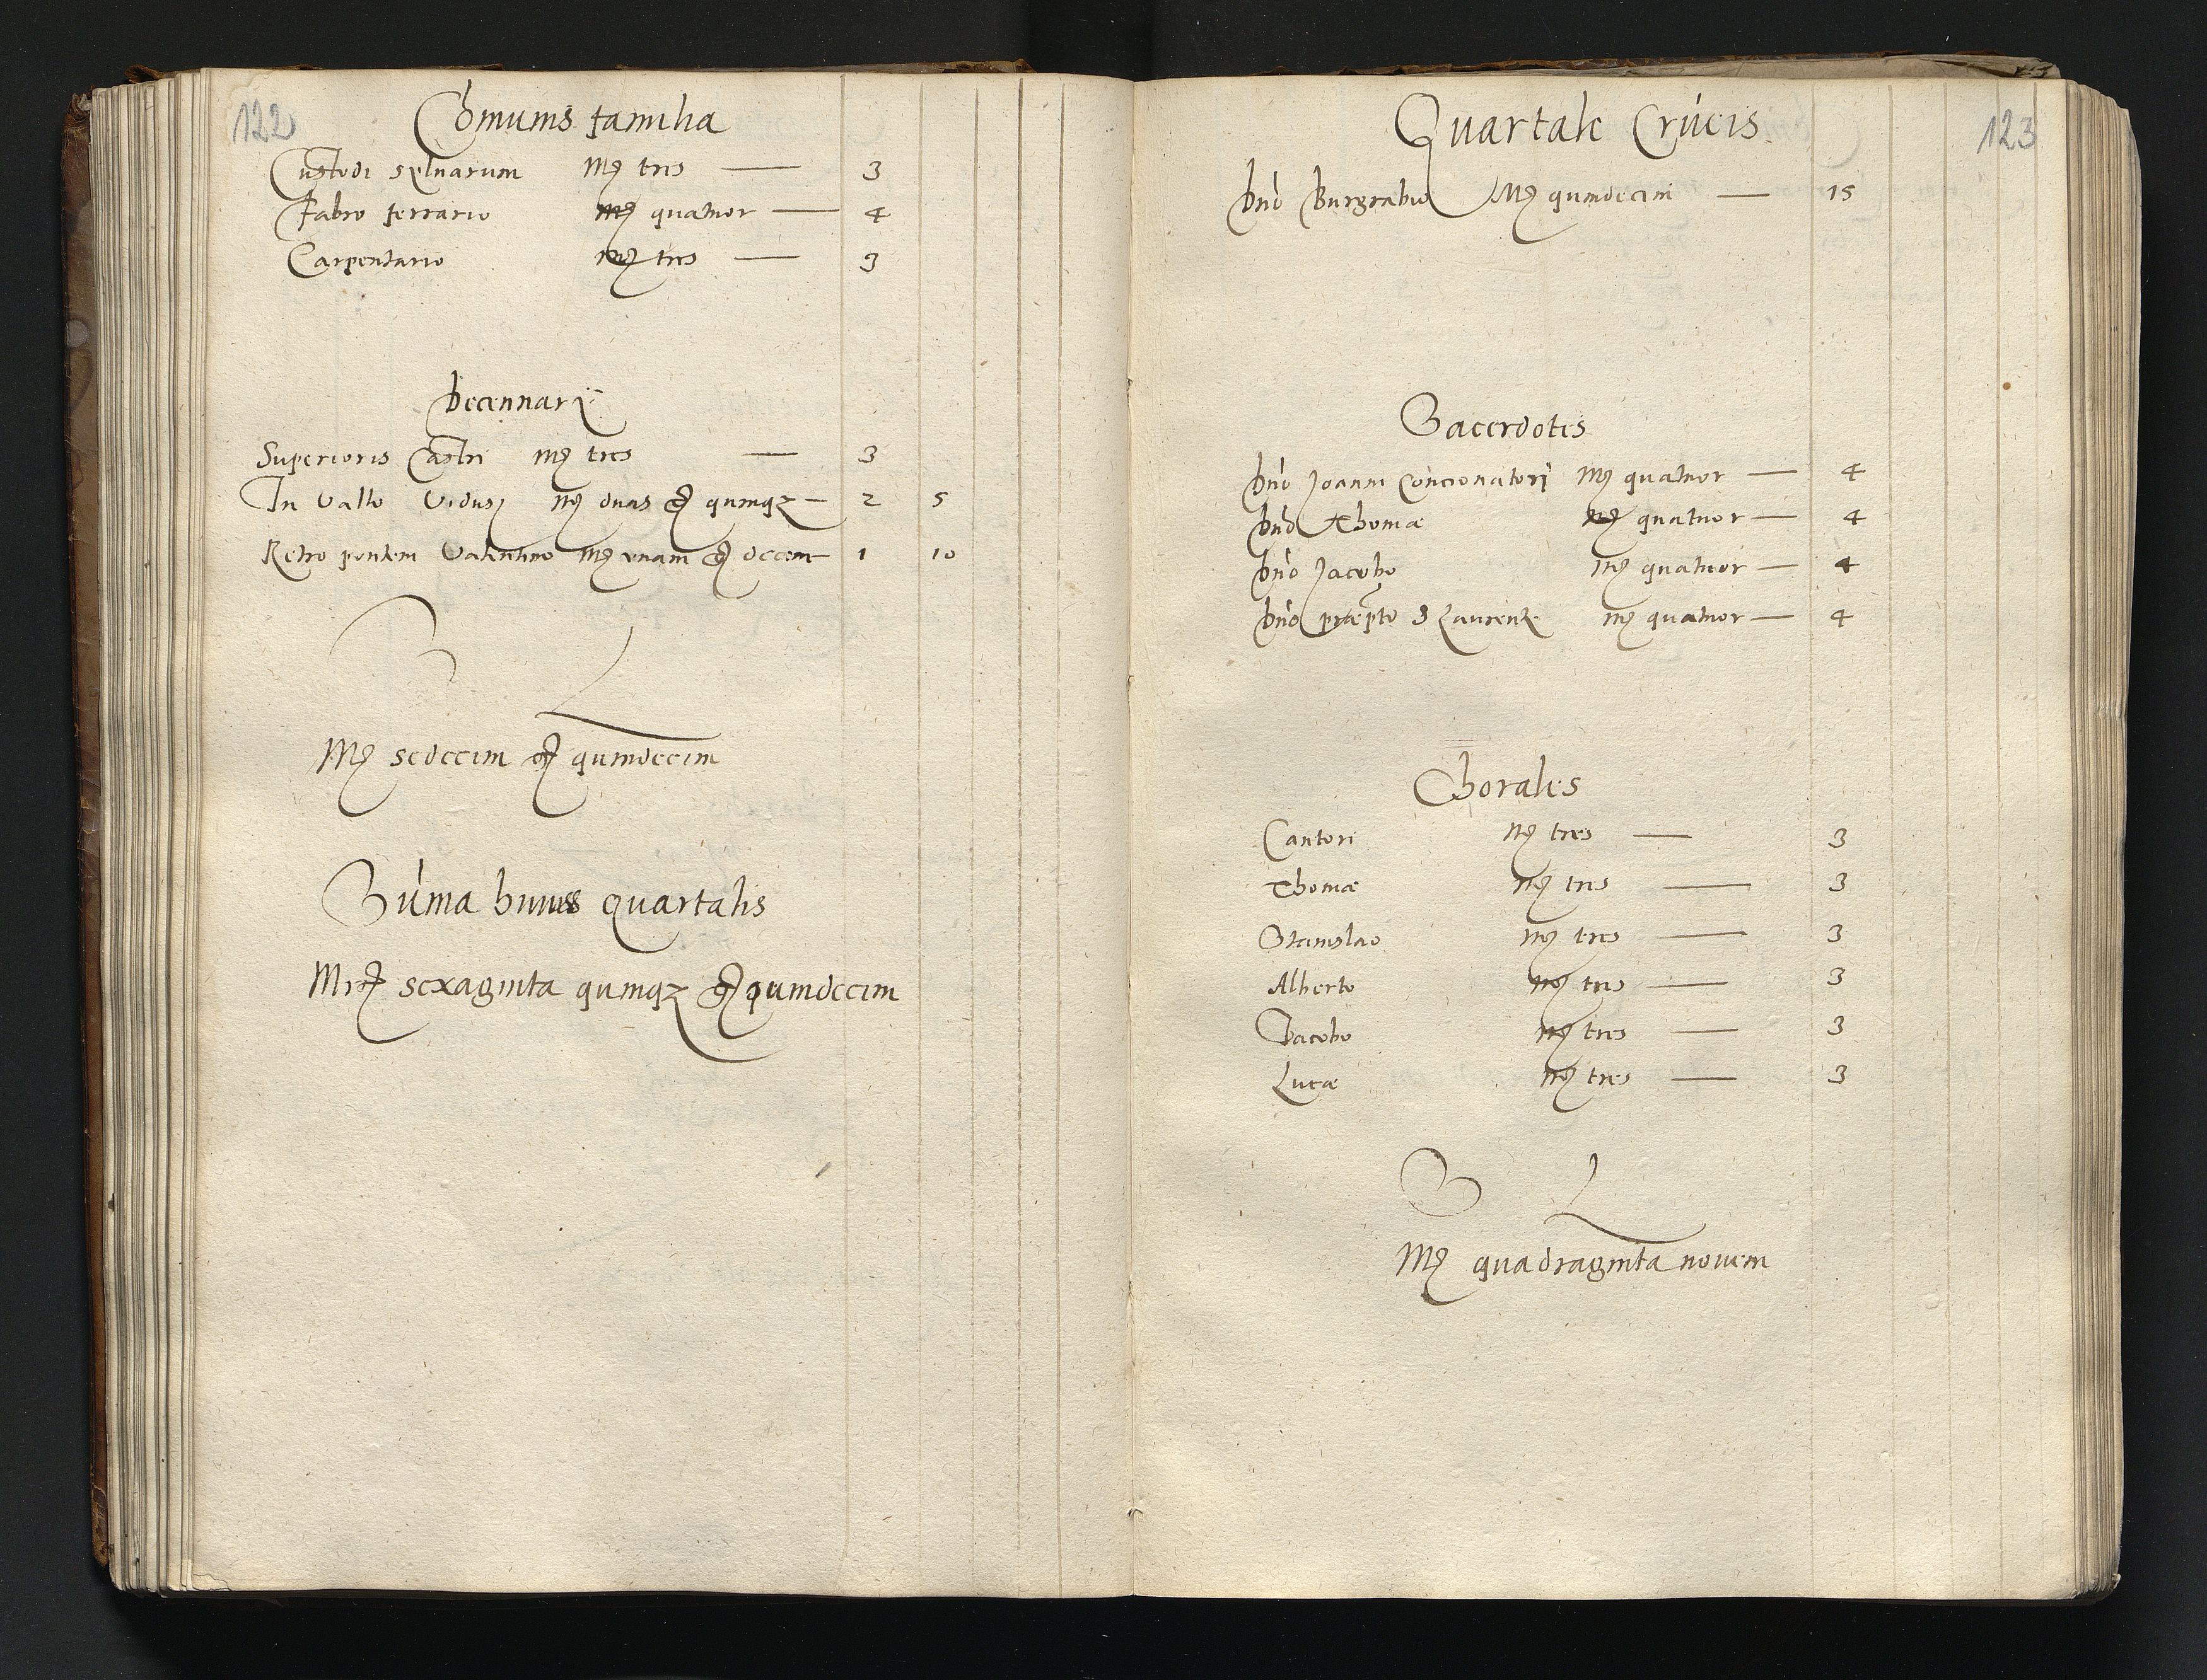 122
Comunis familia
Custodi syluarum Mr tres — 3
Fabro ferrario Mr quatuor — 4
Carpentario Mr tres — 3
Decennarij
Superioris Castri Mr tres — 3
In Vallo Mr duas gr quinqz — 2 5
Retro pontem Valentino Mr vnam gr decem — 1 10
S L
Mr sedecim gr quindecim
Suma huius quartalis
Mr sexaginta quinqz gr quindecim
123
Quartale Crucis
Dno Burgrabio Mr quindecim — 15
Sacerdotes
Dno Joanni Concionatori Mr quatuor — 4
Dno Thomæ Mr quatuor — 4
Dno Jacobo Mr quatuor — 4
Dno præpto S Laurentij Mr quatuor — 4
Chorales
Cantori Mr tres — 3
Thomæ Mr tres — 3
Stanislao Mr tres — 3
Alberto Mr tres — 3
Jacobo Mr tres — 3
Lucæ Mr tres — 3
S L
Mr quadraginta nouem